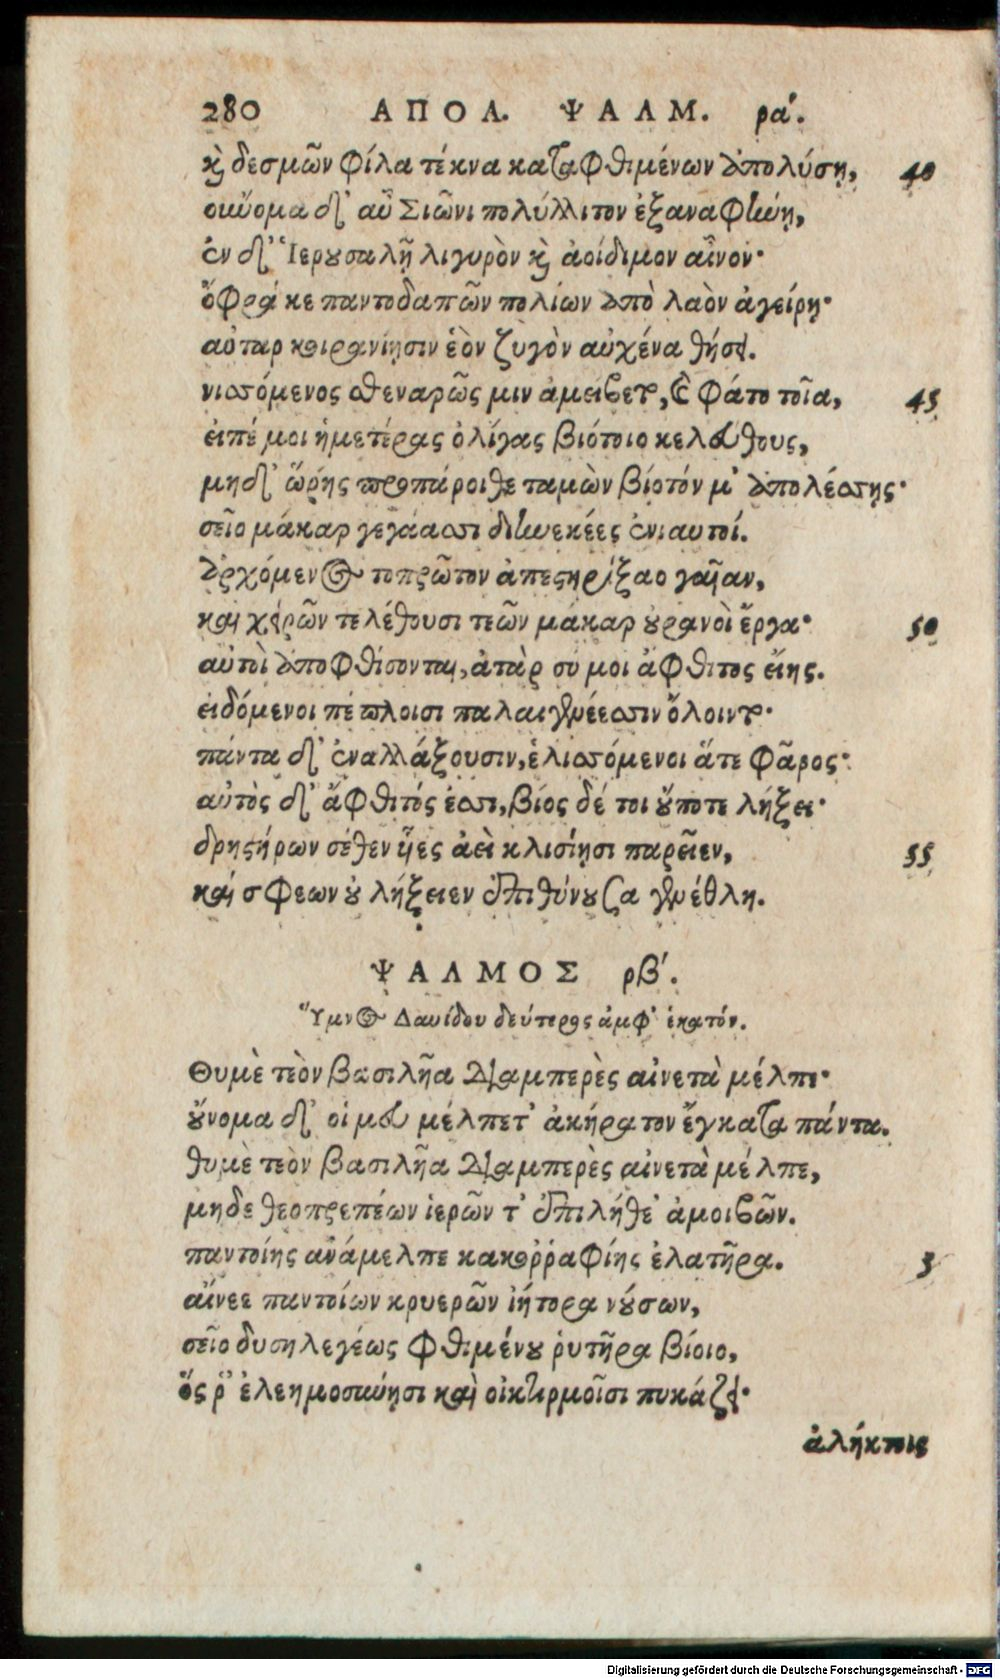 280 ΑΠΟΛ. ΨΑΛΜ. ρα΄.
καὶ δεσμῶν φίλα τέκνα καταφθιμένων ἀπολύσῃ, 40
οὔνομα δ' αὖ Σιῶνι πολύλλιτον ἐξαναφήνῃ,
ἐν δ' Ἱερουσαλὴμ λιγυρὸν καὶ ἀοίδιμον αἶνον·
ὄφρά κε παντοδαπῶν πολίων ἀπὸ λαὸν ἀγείρῃ·
αὐτὰρ κοιρανίῃσιν ἑὸν ζυγὸν αὐχένα θήσει.
νισσόμενος σθεναρῶς μιν ἀμείβετο, καὶ φάτο τοῖα, 45
εἰπέ μοι ἡμετέρας ὀλίγας βιότοιο κελεύθους,
μηδ' ὥρης προπάροιθε ταμὼν βίοτόν μ' ἀπολέσσῃς·
σεῖο μάκαρ γεγάασι διηνεκέες ἐνιαυτοί.
ἀρχόμενος τοπρῶτον ἀπεστηρίξαο γαῖαν,
καὶ χειρῶν τελέθουσι τεῶν μάκαρ οὐρανοὶ ἔργα· 50
αὐτοὶ ἀποφθίσονται, ἀτὰρ σύ μοι ἄφθιτος εἴης.
εἰδόμενοι πέπλοισι παλαιγενέεσσιν ὄλοιντο·
πάντα δ' ἐναλλάξουσιν, ἑλισσόμενοι ἅτε φᾶρος·
αὐτὸς δ' ἄφθιτός ἐσσι, βίος δέ τοι οὔποτε λήξει·
δρηστήρων σέθεν υἷες ἀεὶ κλισίῃσι παρεῖεν, 55
καί σφεων οὐ λήξειεν ἐπιθύνουσα γενέθλη.
ΨΑΛΜΟΣ ρβ΄.
Ὕμνος Δαυίδου δεύτερος ἀμφ' ἑκατόν.
Θυμὲ τεὸν βασιλῆα διαμπερὲς αἰνετὰ μέλπε·
οὔνομα δ' οἱ μευ μέλπετ' ἀκήρατον ἔγκατα πάντα.
θυμὲ τεὸν βασιλῆα διαμπερὲς αἰνετὰ μέλπε,
μηδε θεοπρεπέων ἱερῶν τ' ἐπιλήθε' ἀμοιβῶν.
παντοίης ἀνάμελπε κακορραφίης ἐλατῆρα. 5
αἴνεε παντοίων κρυερῶν ἰήτορα νούσων,
σεῖο δυσηλεγέως φθιμένου ῥυτῆρα βίοιο,
ὅς ῥ' ἐλεημοσύνῃσι καὶ οἰκτιρμοῖσι πυκάζει·
ἀλήκτοις
Digitalisierung gefördert durch die Deutsche Forschungsgemeinschaft - DFG